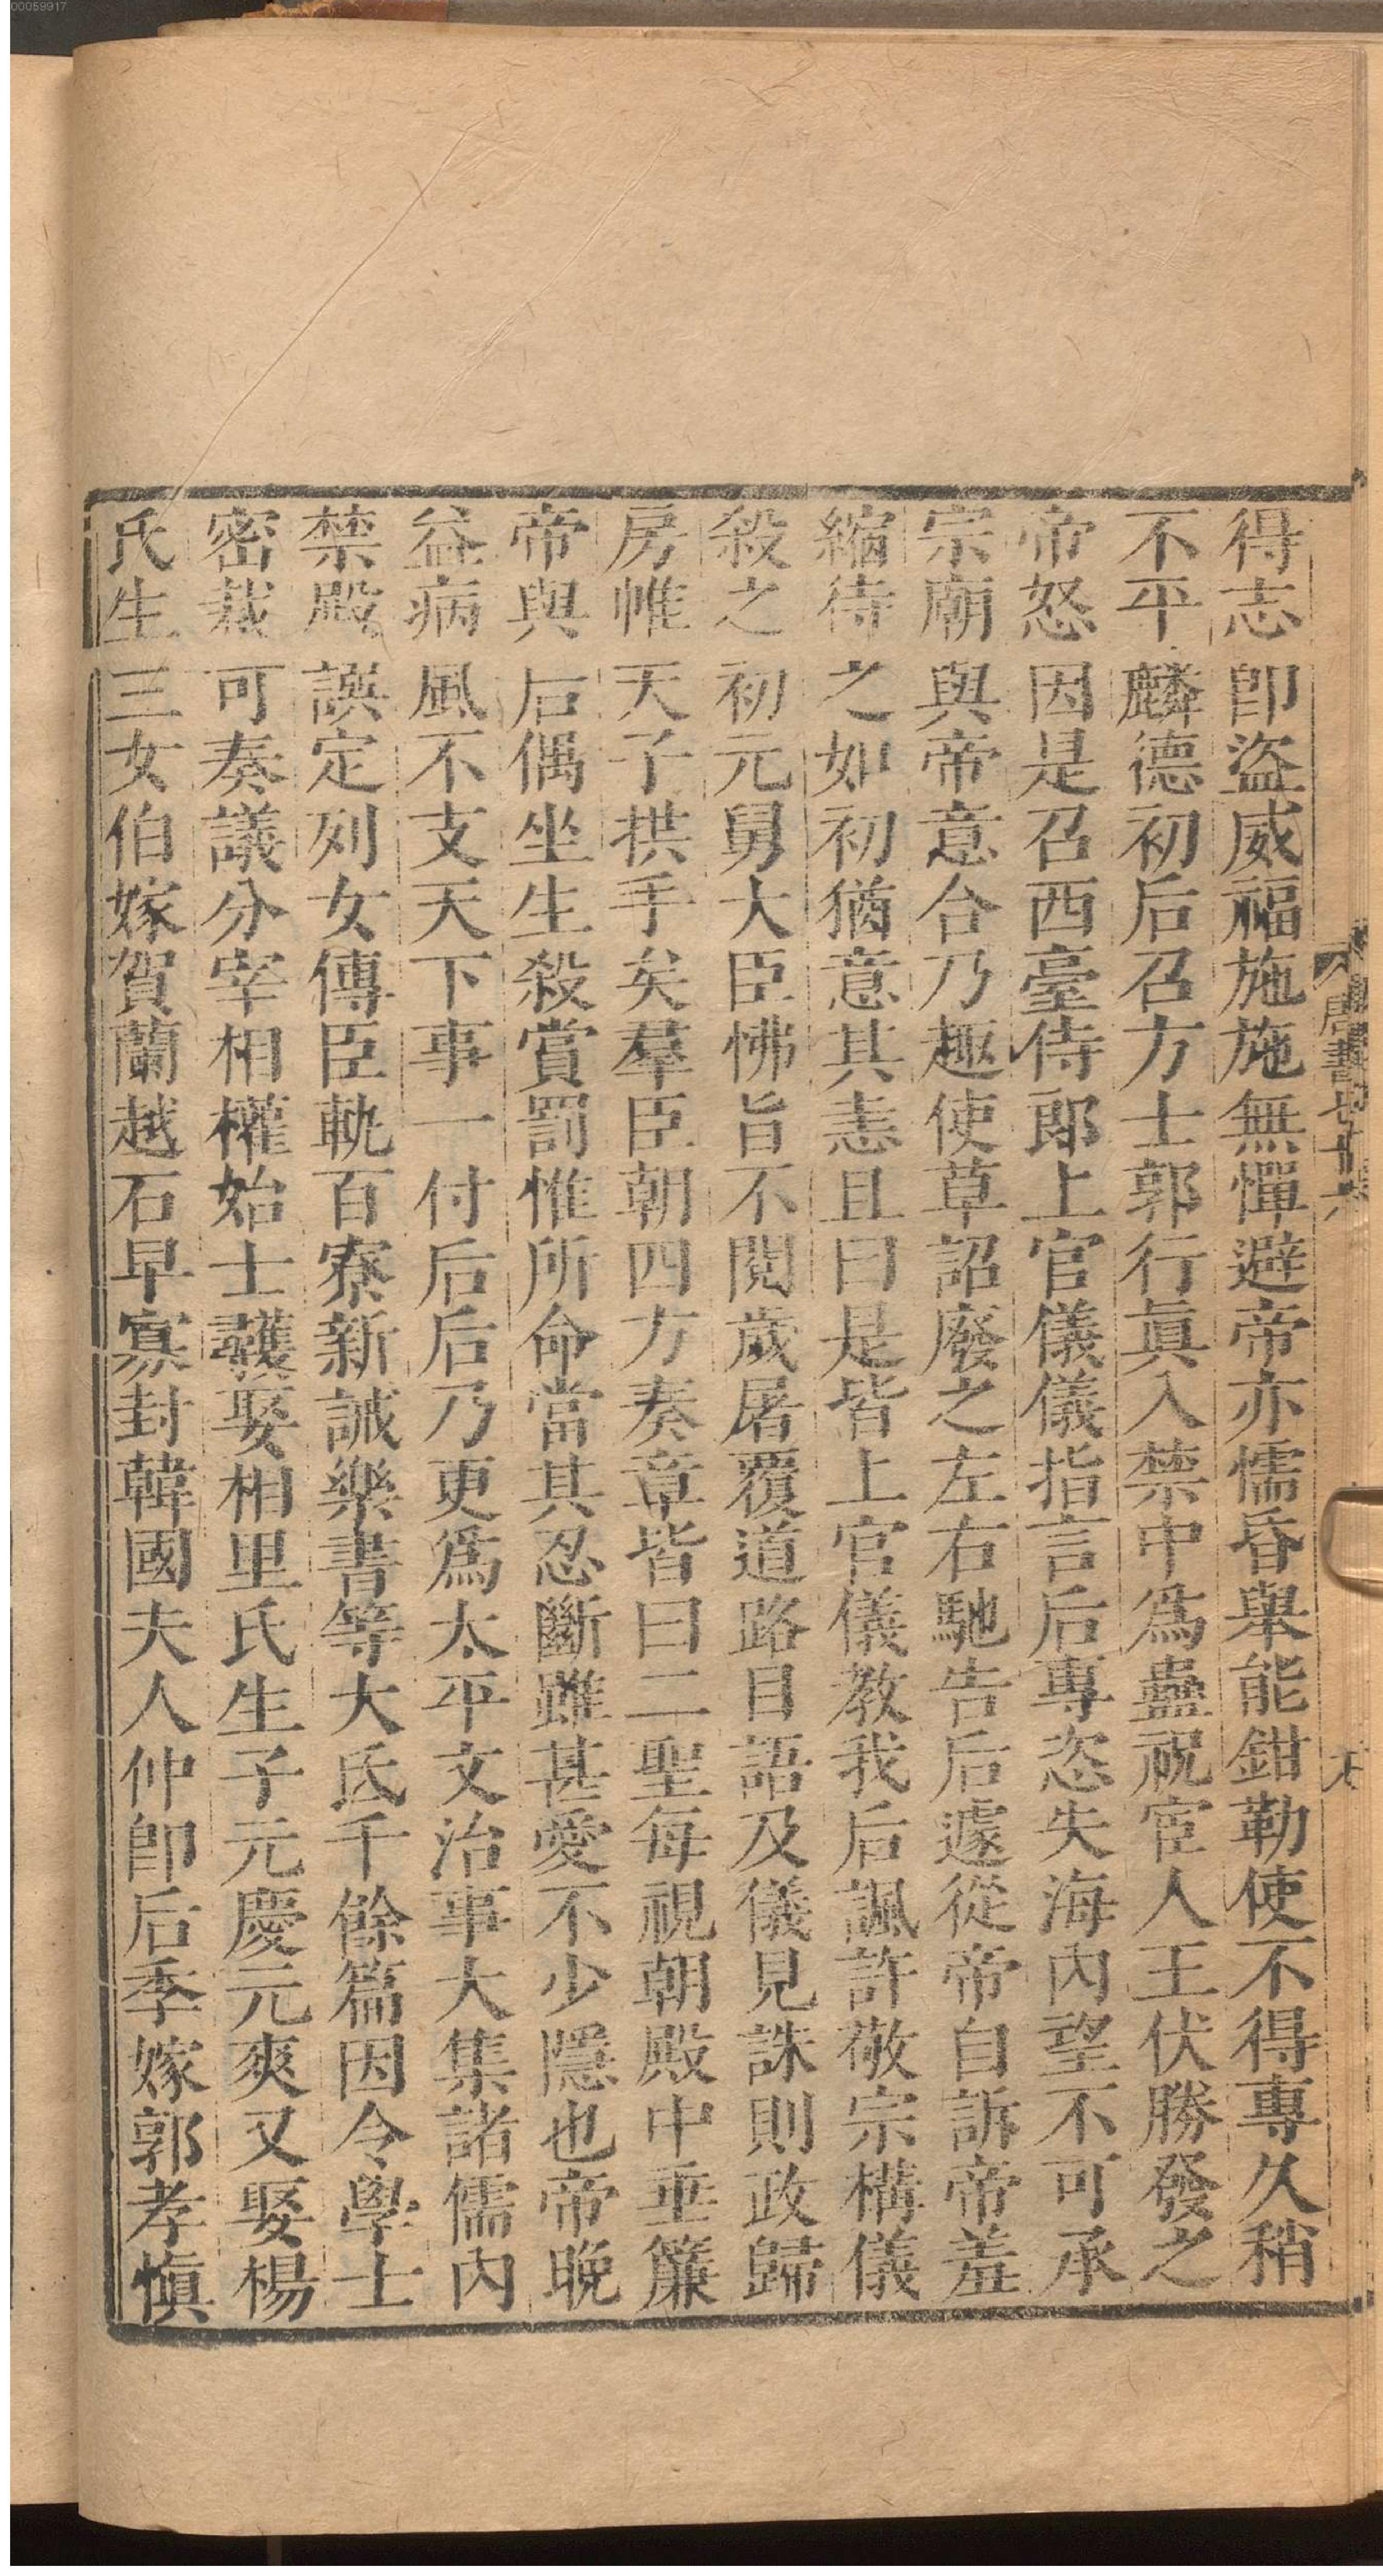 得志即盜威福施施無憚避帝亦懦昏舉能鉗勒使不得專久稍
不平麟德初后召方士郭行眞入禁中爲蠱祝宦人王伏勝發之
帝怒因是召西臺侍郎上官儀儀指言后專恣失海內望不可承
宗廟與帝意合乃趣使草詔廢之左右馳告后遽從帝自訴帝羞
縮待之如初猶意其恚且曰是皆上官儀教我后諷許敬宗構儀
殺之初元舅大臣怫旨不閱歲屠覆道路目語及儀見誅則政歸
房帷天子拱手矣羣臣朝四方奏章皆曰二聖每視朝殿中垂簾
帝與后偶坐生殺賞罰惟所命當其忍斷雖甚愛不少隱也帝晚
益病風不支天下事一付后后乃更爲太平文治事大集諸儒內
禁殿譔定列女傳臣軌百寮新誡樂書等大氐千餘篇因令學士
密裁可奏議分宰相權始士彠娶相里氏生子元慶元爽又娶楊
氏生三女伯嫁賀蘭越石早寡封韓國夫人仲即后季嫁郭孝愼
00059917